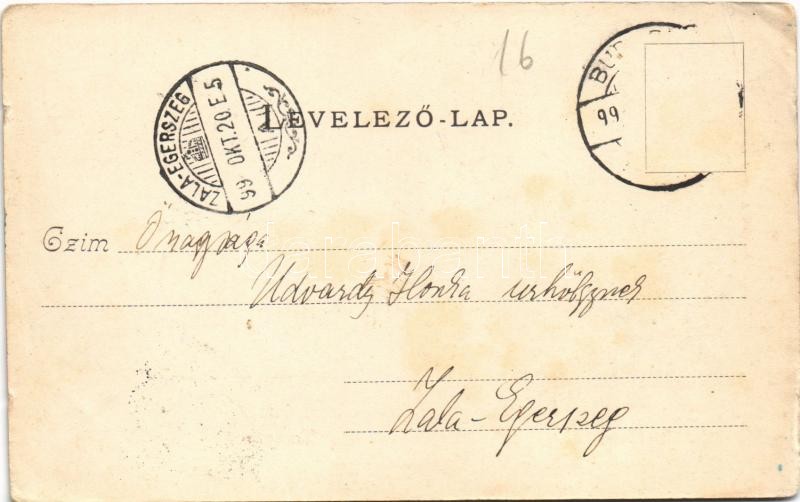 16
ZALA-EGERSZEG
99 OKT.20 E5
BUD
99
LEVELEZŐ-LAP.
Czim Őnagysága
Udvardy Ilonka urhölgynek
Zala-Egerszeg